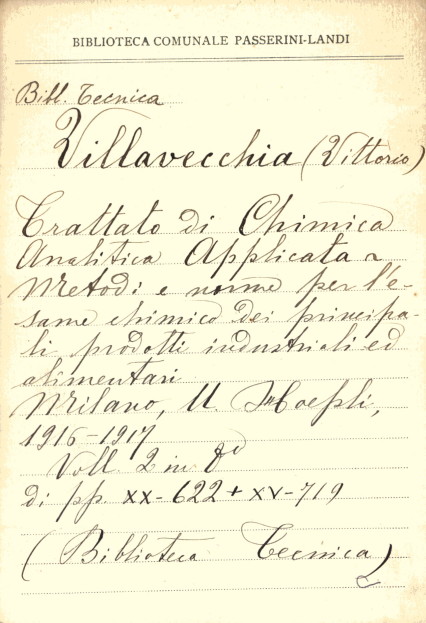 BIBLIOTECA COMUNALE PASSERINI-LANDI
Bibl. Tecnica
Villavecchia (Vittorio)
Trattato di Chimica
Analitica Applicata ~
Metodi e norme per l'e-
same chimico dei principa-
li prodotti industriali ed
alimentari
Milano, U. Hoepli,
1916-1917
Voll. 2 in 8º
di pp. XX-622 + XV-719
(Biblioteca Tecnica)